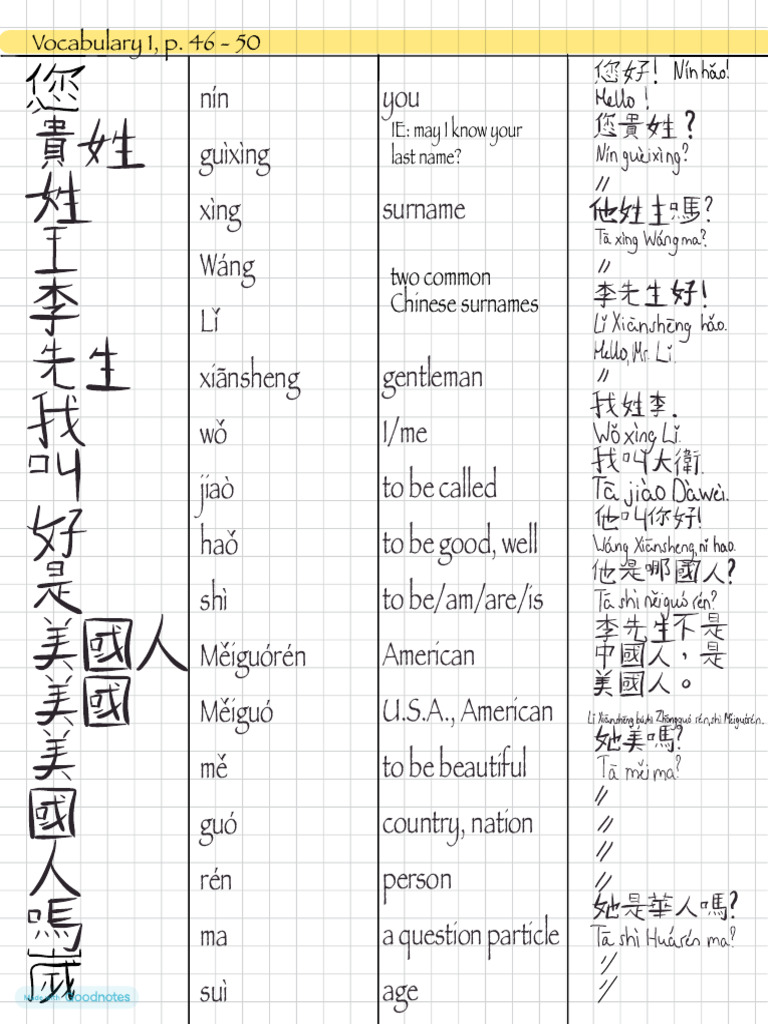 Vocabulary 1, p. 46 - 50
您 nín you
貴姓 guìxìng IE: may I know your last name?
姓 xìng surname
王 Wáng two common
李 Lǐ Chinese surnames
先生 xiānsheng gentleman
我 wǒ I/me
叫 jiaò to be called
好 haǒ to be good, well
是 shì to be/am/are/is
美國人 Měiguórén American
美國 Měiguó U.S.A., American
美 mě to be beautiful
國 guó country, nation
人 rén person
嗎 ma a question particle
歲 suì age
您好! Nín hǎo!
Hello!
您貴姓?
Nín guèixìng?
〃
他姓王嗎?
Tā xìng Wáng ma?
〃
李先生好!
Lǐ Xiānshēng hǎo.
Hello, Mr. Li.
〃
我姓李.
Wǒ xìng Lǐ.
我叫大衛.
Tā jiào Dàwèi.
他叫你好!
Wáng Xiānsheng, nǐ hao.
他是哪國人?
Tā shì něiguó rén?
李先生不是
中國人，是
美國人。
Lǐ Xiānshēng búshì Zhōngguó rén, shì Měiguórén.
她美嗎?
Tā měi ma?
〃
〃
〃
〃
她是華人嗎?
Tā shì Huárén ma?
〃
〃
Made with Goodnotes